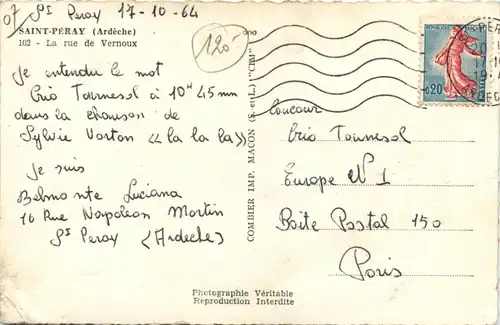 07
St Peray 17-10-64
SAINT-PÉRAY (Ardèche)
102 - La rue de Vernoux
120-
Je entendu le mot
Trio Tournesol à 10H 45mn
dans la chanson de
Sylvie Varton « la la la »
Je suis
Belmonte Luciana
16 Rue Napoléon Martin
St Peray (Ardeche)
COMBIER IMP. MACON (S.-et-L.) "CIM"
Concour
trio Tournesol
Europe N 1
Boite Postal 150
Paris
0,20
Photographie Véritable
Reproduction Interdite